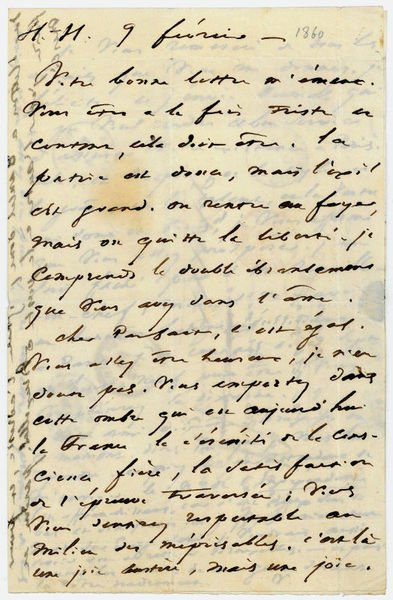 H.-H. 9 février — 1860
Votre bonne lettre m'émeut.
Vous êtes à la fois triste et
content, cela doit être. la
patrie est douce, mais l'exil
est grand. on rentre au foyer,
mais on quitte la liberté. je
comprends le double ébranlement
que vous avez dans l'âme.
cher Parfait, c'est égal.
Vous allez être heureux, je n'en
doute pas. Vous emportez dans
cette ombre qui est aujourd'hui
la France la sérénité de la cons-
cience fière, la satisfaction
de l'épreuve traversée ; vous
vous sentirez respectable au
milieu des méprisables. c'est là
une joie austère, mais une joie.